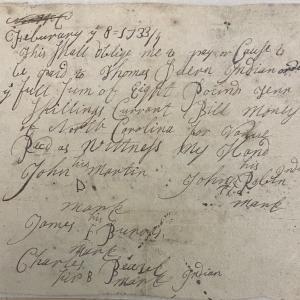 Feburary y 8 = 1733/4
This Shall oblige me to pay or Cause to
be paid to Thomas Indian
y full Sum of Eight Pound Tenn
Shillings Currant Bill Money
of North Carolina for Value
Reed as Wittness My Hand
John his Martin John his Indian
D
mark mark
James his
mark
Charles Indian
his B mark